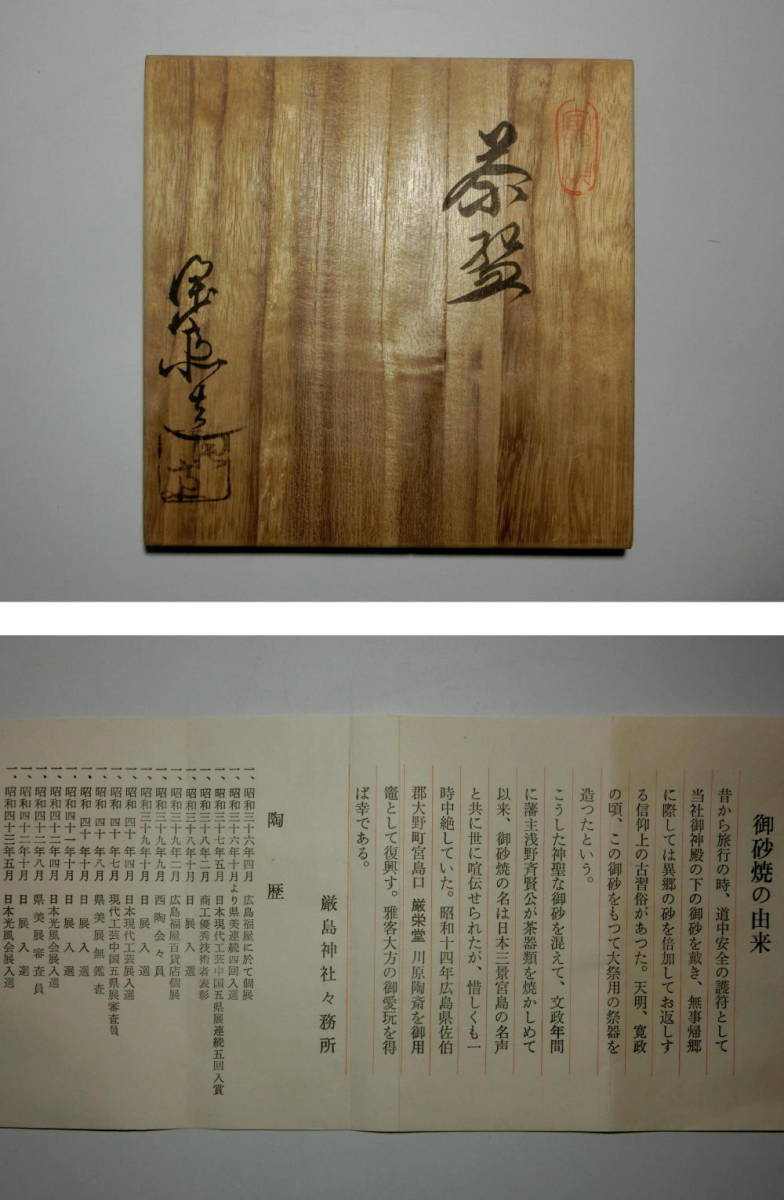 茶盌
御砂焼の由来
昔から旅行の時、道中安全の護符として
当社御神殿の下の御砂を戴き、無事帰郷
に際しては異郷の砂を倍加してお返しす
る信仰上の古習俗があつた。天明、寛政
の頃、この御砂をもつて大祭用の祭器を
造つたという。
こうした神聖な御砂を混えて、文政年間
に藩主浅野斉賢公が茶器類を焼かしめて
以来、御砂焼の名は日本三景宮島の名声
と共に世に喧伝せられたが、惜しくも一
時中絶していた。昭和十四年広島県佐伯
郡大野町宮島口 厳栄堂 川原陶斎を御用
竈として復興す。雅客大方の御愛玩を得
ば幸である。
厳島神社々務所
陶歴
一、昭和三十六年四月 広島福屋に於て個展
一、昭和三十六年十月より県美連続四回入選
一、昭和三十七年五月 日本現代工芸中国五県展連続五回入賞
一、昭和三十八年二月 商工優秀技術者表彰
一、昭和三十八年十月 日展入選
一、昭和三十九年二月 広島福屋百貨店個展
一、昭和三十九年九月 西陶会々員
一、昭和三十九年十月 日展入選
一、昭和四十年四月 日本現代工芸展入選
一、昭和四十年七月 現代工芸中国五県展審査員
一、昭和四十年八月 県美展無鑑査
一、昭和四十年十月 日展入選
一、昭和四十一年十月 日展入選
一、昭和四十二年四月 日本光風会展入選
一、昭和四十二年八月 県美展審査員
一、昭和四十二年十月 日展入選
一、昭和四十三年五月 日本光風会展入選